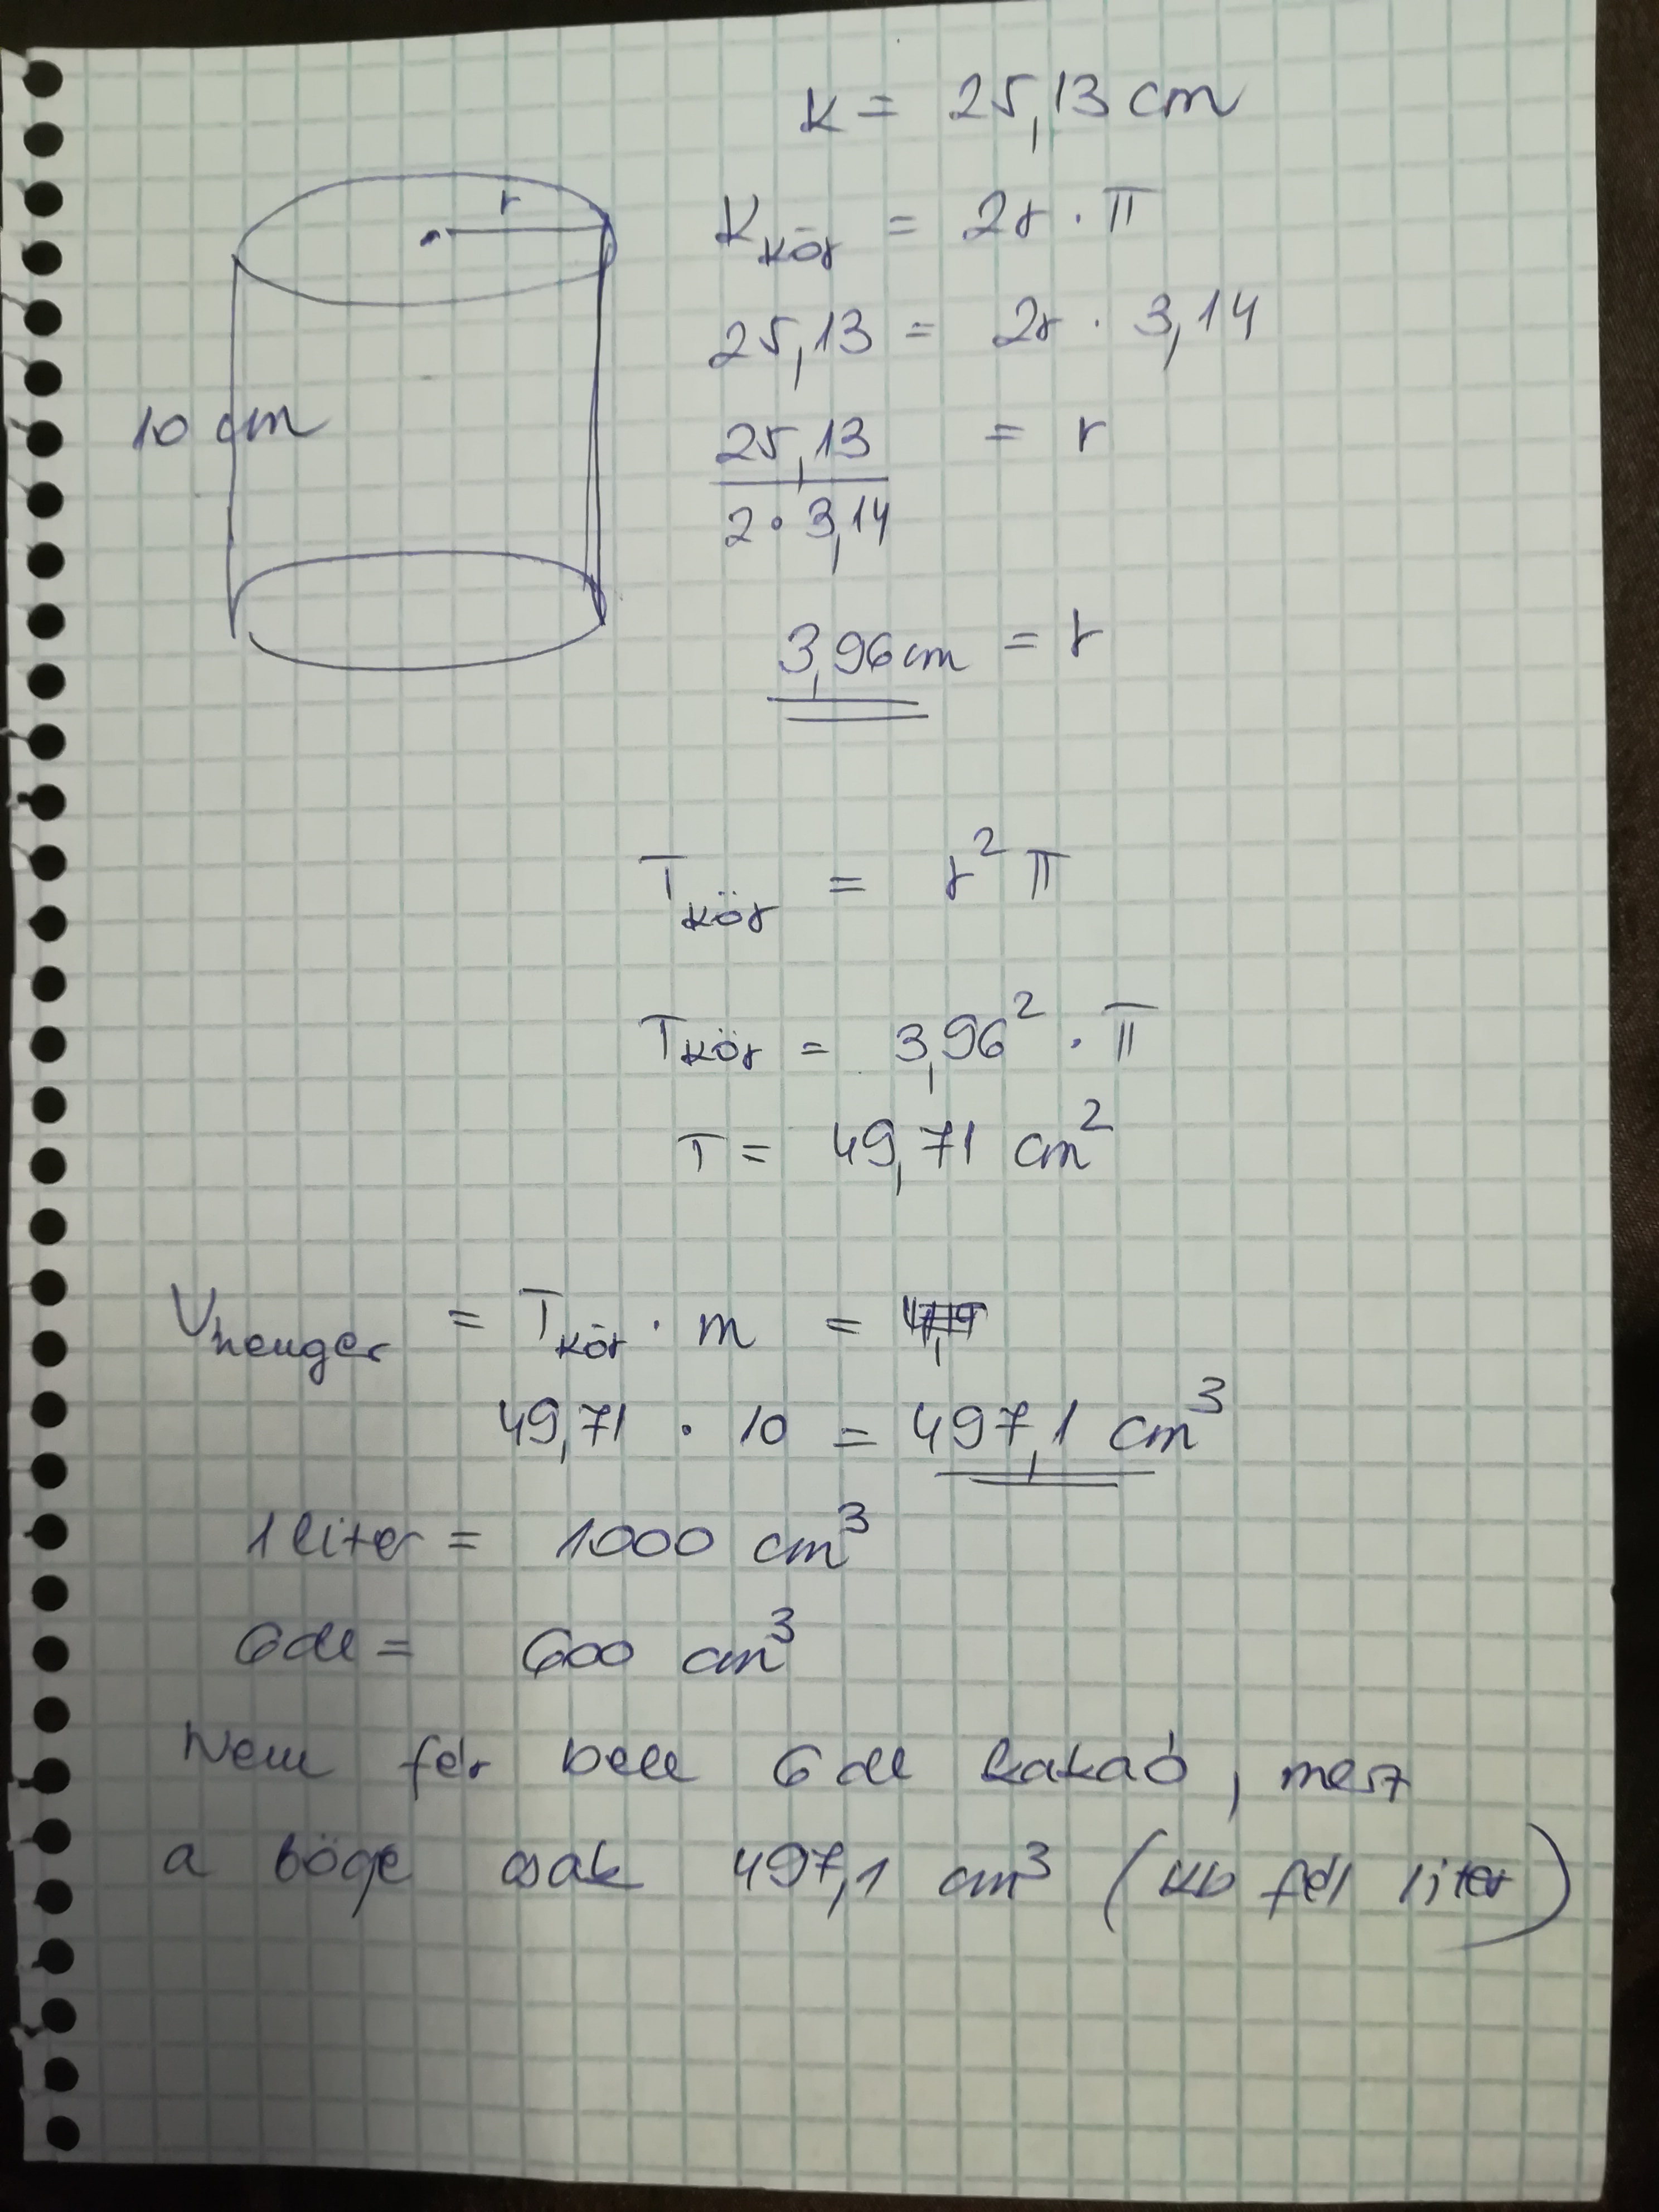 K = 25,13 cm
r
K kör = 2r · π
25,13 = 2r · 3,14
10 cm
25,13 = r
2 · 3,14
3,96 cm = r
T kör = r² π
T kör = 3,96² · π
T = 49,71 cm²
V henger = T kör · m =
49,71 · 10 = 497,1 cm³
1 liter = 1000 cm³
6 dl = 600 cm³
Nem fér bele 6 dl kakaó, mert
a böge csak 497,1 cm³ (kb fél liter)